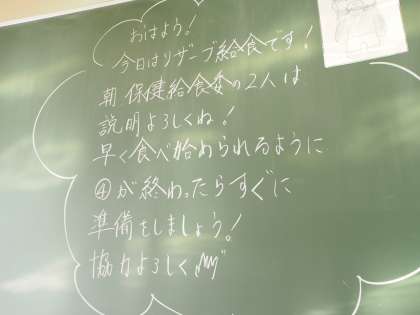 おはよう!
今日はリザーブ給食です!
朝 保健給食委の2人は
説明よろしくね!
早く食べ始められるように
④が終わったらすぐに
準備をしましょう!
協力よろしく